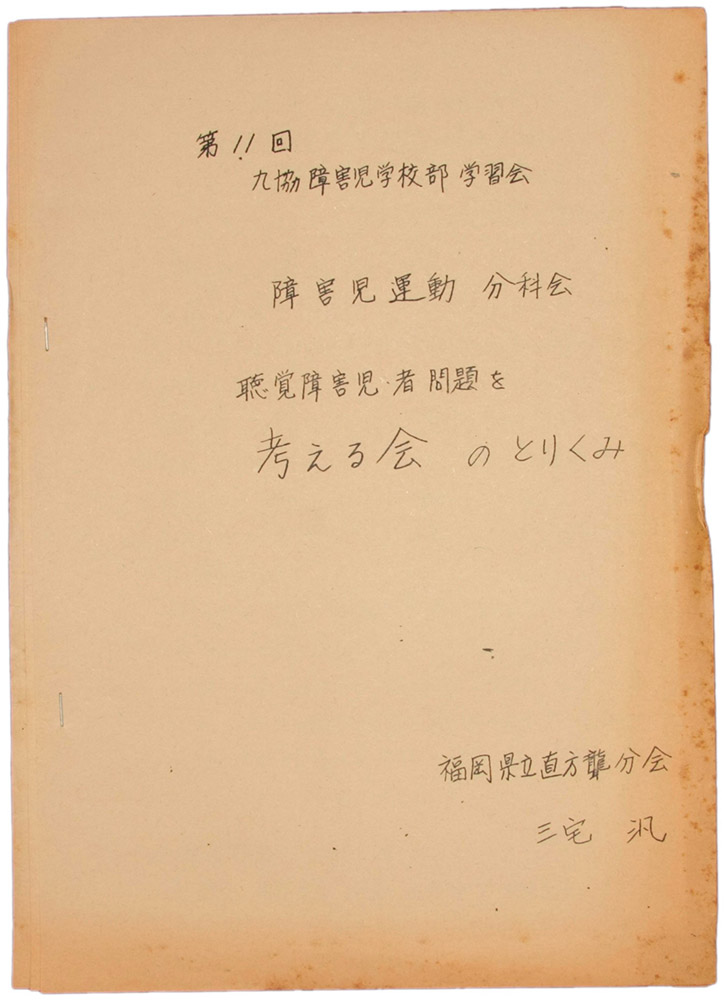 第11回
九協障害児学校部学習会
障害児運動 分科会
聴覚障害児・者問題を
考える会 のとりくみ
福岡県立直方聾分会
三宅 汎